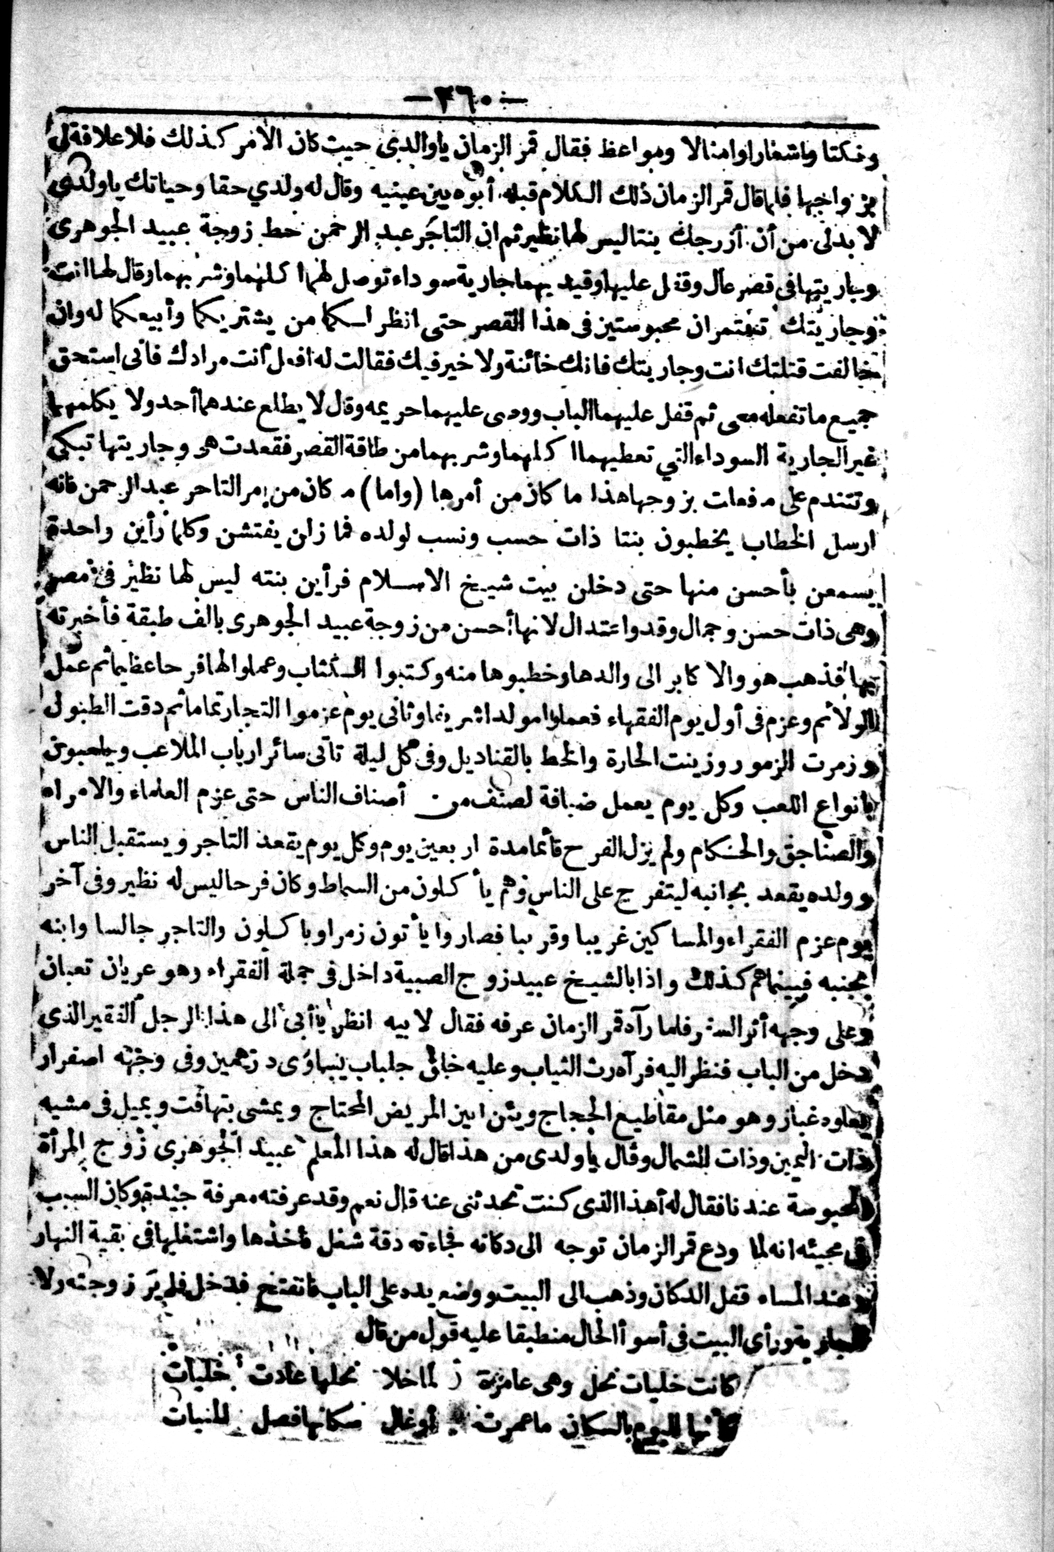 — ٣٦٠ —
ونكتا واشعارا وامثالا ومواعظ فقال قمر الزمان ياوالدى حيث كان الأمر كذلك فلا علاقة لى
بزواجها فلما قال قمر الزمان ذلك الكلام قبله أبوه بين عينيه وقال له ولدي حقا وحياتك ياولدى
لا بدلى من أن أزوجك بنتا ليس لها نظير ثم ان التاجر عبد الرحمن حط زوجة عبيد الجوهرى
وجاريتها فى قصر عال وقفل عليهما وقيد بهما جارية سوداء توصل لهما اكلهما وشربهما وقال لها انت
وجاريتك تستمران محبوستين فى هذا القصر حتى انظر لكما من يشتريكما وأبيعكما له وان
خالفت قتلتك انت وجاريتك فانك خائنة ولا خير فيك فقالت له افعل انت مرادك فانى استحق
جميع ما تفعله معى ثم قفل عليهما الباب ووصى عليهما حريمه وقال لا يطلع عندهما أحد ولا يكلمهما
غير الجارية السوداء التي تعطيهما اكلهما وشربهما من طاقة القصر فقعدت هى وجاريتها تبكى
وتتندم على ما فعلت بزوجها هذا ما كان من أمرها (واما) ما كان من امر التاجر عبد الرحمن فانه
ارسل الخطاب يخطبون بنتا ذات حسب ونسب لولده فما زلن يفتشن وكلما رأين واحدة
يسمعن بأحسن منها حتى دخلن بيت شيخ الاسلام فرأين بنته ليس لها نظير فى مصر
وهى ذات حسن وجمال وقد واعتدال لانها أحسن من زوجة عبيد الجوهرى بالف طبقة فأخبرته
بها فذهب هو والا كابر الى والدها وخطبوها منه وكتبوا الكتاب وعملوا لها فرحا عظيما ثم عمل
الولائم وعزم فى أول يوم الفقهاء فعملوا مولدا شريفا وثانى يوم عزموا التجار تماما ثم دقت الطبول
وزمرت الزمور وزينت الحارة والخط بالقناديل وفى كل ليلة تأتى سائر ارباب الملاعب ويلعبون
بانواع اللعب وكل يوم يعمل ضيافة لصنف من أصناف الناس حتى عزم العلماء والامراء
والصناجق والحكام ولم يزل الفرح قائما مدة اربعين يوم وكل يوم يقعد التاجر ويستقبل الناس
وولده يقعد بجانبه ليتفرج على الناس وهم يأكلون من السماط وكان فرحا ليس له نظير وفى آخر
يوم عزم الفقراء والمساكين غريبا وقريبا فصاروا يأتون زمرا وياكلون والتاجر جالسا وابنه
بجنبه فبينماهم كذلك واذا بالشيخ عبيد زوج الصبية داخل فى جملة الفقراء وهو عريان تعبان
وعلى وجهه أثر السفر فلما رآه قمر الزمان عرفه فقال لابيه انظر ياأبى الى هذا الرجل الفقير الذى
دخل من الباب فنظر اليه فرآه رث الثياب وعليه خلق جلباب يساوى درهمين وفى وجهه اصفرار
يعلوه غبار وهو مثل مقاطيع الحجاج ويئن انين المريض المحتاج ويمشى بتهافت ويميل فى مشيه
ذات اليمين وذات الشمال وقال ياولدى من هذا قال له هذا المعلم عبيد الجوهرى زوج المرأة
المحبوسة عندنا فقال له أهذا الذى كنت تحدثنى عنه قال نعم وقد عرفته معرفة جيدة وكان السبب
فى مجيئه انه لما ودع قمر الزمان توجه الى دكانه فجاءته دقة شغل فأخذها واشتغلها فى بقية النهار
وعند المساء قفل الدكان وذهب الى البيت ووضع يده على الباب فانفتح فدخل فلم ير زوجته ولا
الجارية ورأى البيت فى أسوأ الحال منطبقا عليه قول من قال
كانت خليات نحل وهى عامرة لما خلا نحلها عادت خليات
كأنها اليوم بالسكان ما عمرت أو غال سكانها فصل المنيات